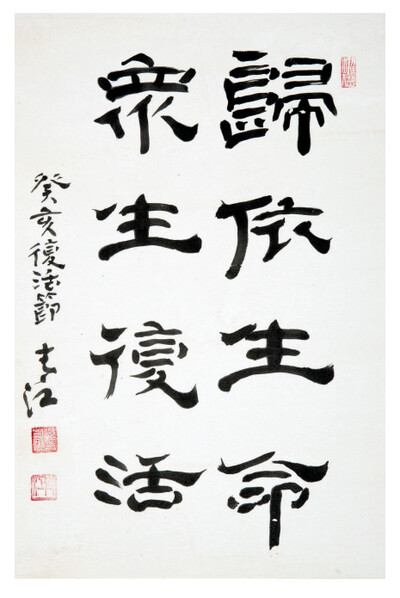 歸依生命
衆生復活
癸亥復活節 青江